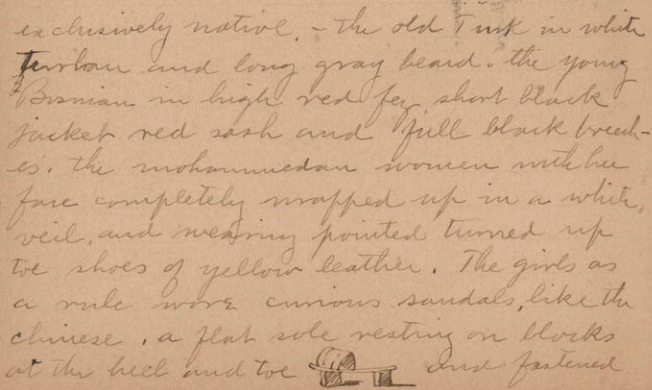 exclusively native. - the old Turk in white
turban and long gray beard. the young
Bosnian in high red fez short black
jacket red sash and full black breech-
es. the mohammedan women with her
face completely wrapped up in a white
veil, and wearing pointed turned up
toe shoes of yellow leather. The girls as
a rule wore curious sandals, like the
chinese, a flat sole resting on blocks
at the heel and toe and fastened